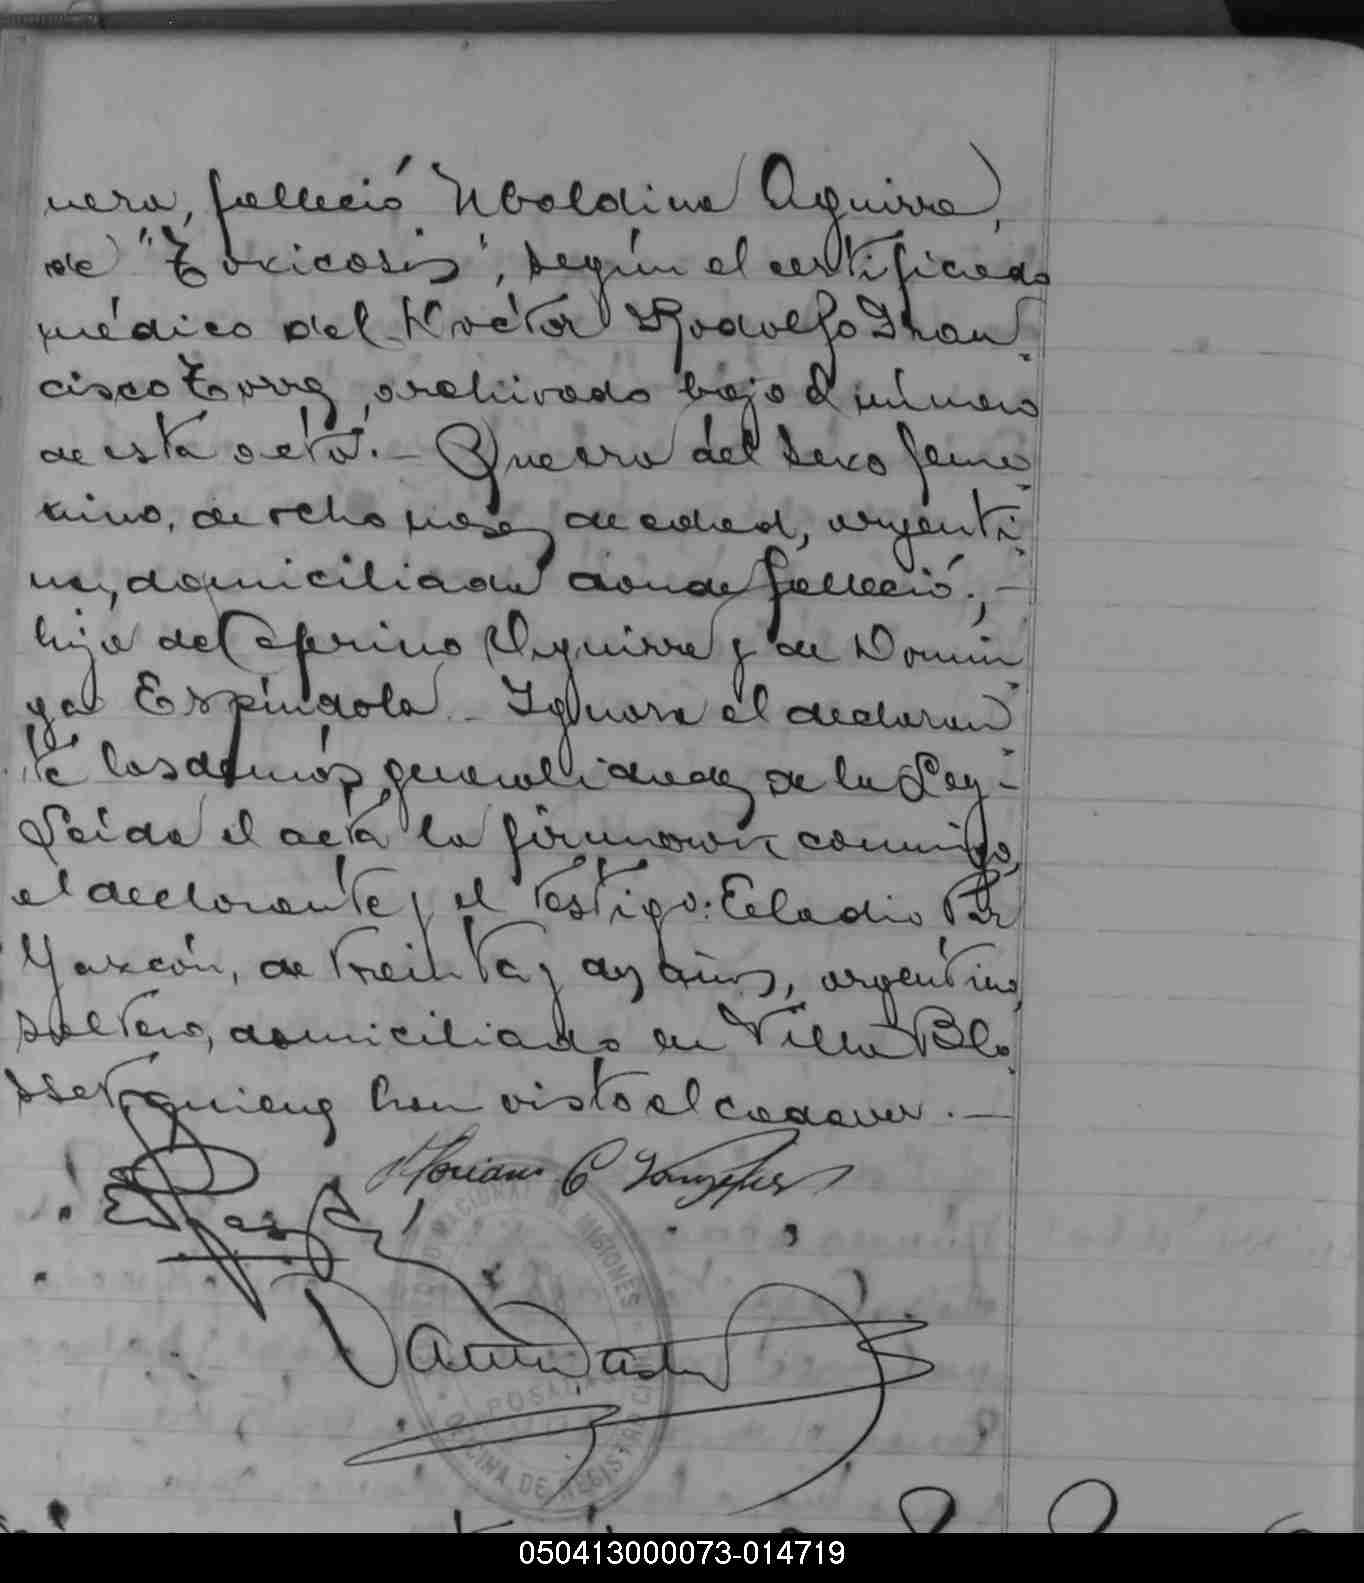 nera, falleció Ubaldina Aguirre,
de "Toxicosis", según el certificado
médico del Doctor Rodolfo Fran
cisco Torres, archivado bajo el número
de esta acta.- Que era del sexo feme
nino, de ocho meses de edad, argenti
na, domiciliada donde falleció.,-
hija de Ceferino Aguirre y de Domin
ga Espíndola.- Ignora el declaran
te las demás generalidades de la Ley-
Leida el acta la firmaron conmigo,
el declarante y el testigo: Eladio
de treinta y dos años, argentino,
soltero, domiciliado en Villa Blo
sset, quienes han visto el cadaver.-
Mariano C Gonzalez
NACIONAL DE MISIONES
POSADAS
OFICINA DE REGISTRO CIVIL
050413000073-014719